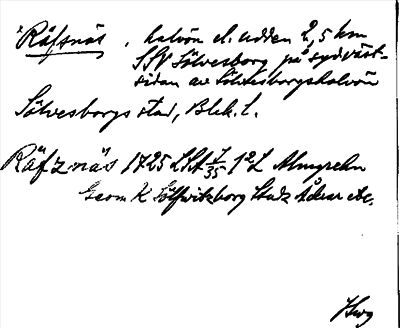 *Räfsnäs, halvön el. udden 2,5 km
SSV Sölvesborg på sydväst-
sidan av Sölvesborgshalvön
Sölvesborgs stad, Blek. l.
Räfznäs 1725 LSA 7/35 1:2 Almgrehn
Geom K Sölfwitzborg Stadz Åker etc.